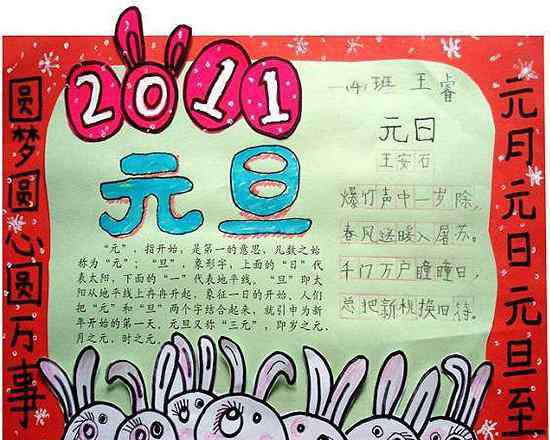 圆梦圆心圆万事
2011
元旦
“元”，指开始，是第一的意思，凡数之始
称为“元”；“旦”，象形字，上面的“日”代
表太阳，下面的“一”代表地平线。“旦”即太
阳从地平线上冉冉升起，象征一日的开始。人们
把“元”和“旦”两个字结合起来，就引申为新
年开始的第一天。元旦又称“三元”，即岁之元、
月之元、时之元。
一(4)班 王睿
元日
王安石
爆竹声中一岁除，
春风送暖入屠苏。
千门万户瞳瞳日，
总把新桃换旧符。
元月元日元旦至